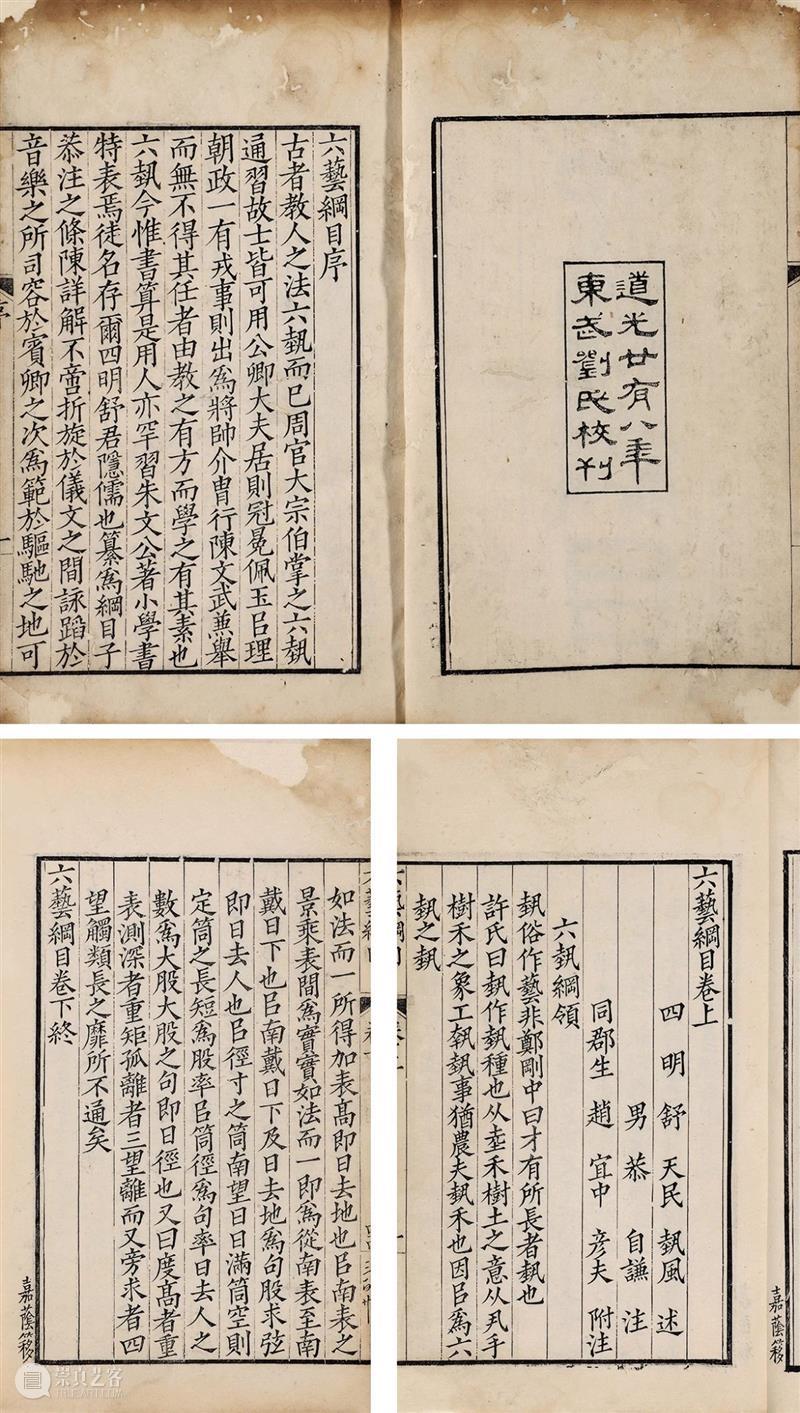 道光廿有八年
東武劉氏校刊
六藝綱目序
古者教人之法六埶而已周官大宗伯掌之六埶
通習故士皆可用公卿大夫居則冠冕佩玉㠯理
朝政一有戎事則出爲將帥介胄行陳文武兼舉
而無不得其任者由教之有方而學之有其素也
六埶今惟書算是用人亦罕習朱文公著小學書
特表焉徒名存爾四明舒君隱儒也纂爲綱目子
恭注之條陳詳解不啻折旋於儀文之間詠蹈於
音樂之所司容於賓卿之次爲範於驅馳之地可
序
六藝綱目卷上
四明舒天民埶風述
男恭自謙注
同郡生趙宜中彦夫附注
六埶綱領
埶俗作藝非鄭剛中曰才有所長者埶也
許氏曰埶作埶種也从坴禾樹土之意从丮手
樹禾之象工執埶事猶農夫埶禾也因㠯爲六
埶之埶
嘉蔭簃
如法而一所得加表高即日去地也㠯南表之
景乘表間爲實實如法而一即爲從南表至南
戴日下也㠯南戴日下及日去地爲句股求弦
即日去人也㠯徑寸之筒南望日日滿筒空則
定筒之長短爲股率㠯筒徑爲句率日去人之
數爲大股大股之句即日徑也又曰度高者重
表測深者重矩孤離者三望離而又旁求者四
望觸類長之靡所不通矣
六藝綱目卷下終
嘉蔭簃
崇真艺客